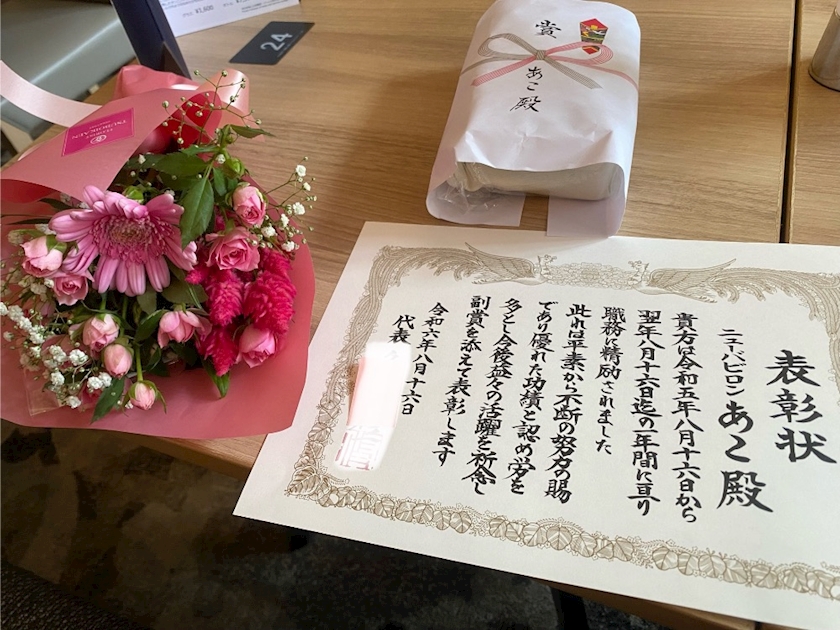 表彰状
ニューバビロン
あこ殿
貴方は令和五年八月十六日から
翌年八月十六日迄の一年間に亘り
職務に精励されました
此れは平素から不断の努力の賜
であり優れた功績と認め労を
多とし今後益々の活躍を祈念し
副賞を添えて表彰します
令和六年八月十六日
代表
賞
あこ殿
24
¥1,600